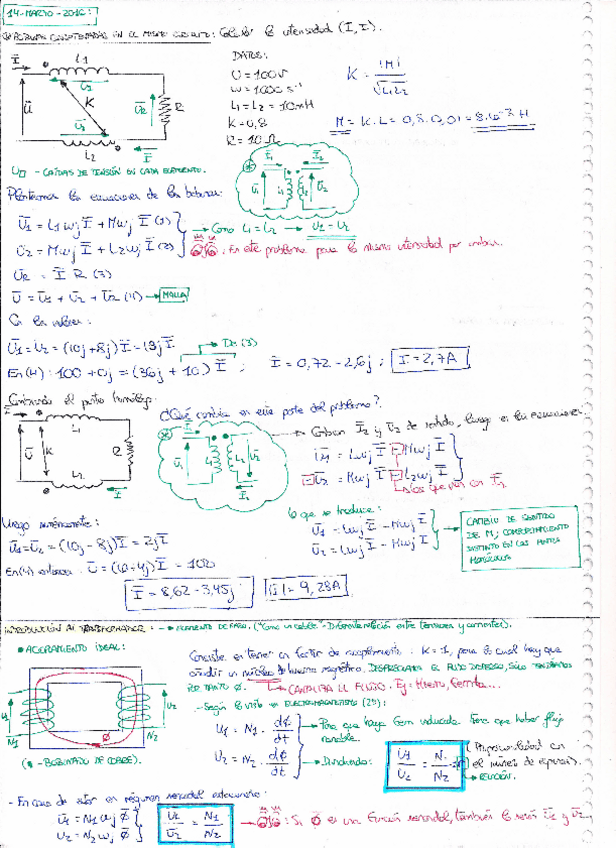 14-MARZO-2016:
BOBINAS CONECTADAS EN EL MISMO CIRCUITO: Calcular la intensidad (I, I).
DATOS:
U = 100V
ω = 1000 s⁻¹
L1 = L2 = 10mH
K = 0,8
R = 10 Ω
K = |M| / √L1L2
M = K·L = 0,8·0,01 = 8·10⁻³ H
U□ - CAÍDAS DE TENSIÓN EN CADA ELEMENTO.
Planteamos las ecuaciones de las bobinas:
U1 = L1ωj I + Mωj I (1)
U2 = Mωj I + L2ωj I (2)
→ Como L1 = L2 → U1 = U2
: En este problema pasa la misma intensidad por ambas.
UR = I R (3)
U = U1 + U2 + UR (4) → MALLA
U1 = U2 = (10j + 8j) I = 18j I
De (3)
En (4): 100 + 0j = (36j + 10) I ; I = 0,72 - 2,6j ; I = 2,7A
Cambiando el punto homólogo:
¿Qué cambia en esta parte del problema?
Cambian I2 y U2 de sentido, luego en las ecuaciones:
U1 = Lωj I - Mωj I
-U2 = Mωj I - L2ωj I
los que van con I2
lo que se traduce:
U1 = Lωj I - Mωj I
U2 = Lωj I - Mωj I
CAMBIO DE SENTIDO DE M; COMPORTAMIENTO DISTINTO EN LOS PUNTOS HOMÓLOGOS
Luego nuevamente:
U1 = U2 = (10j - 8j) I = 2j I
En (4) entonces: U = (10+4j) I = 100
I = 8,62 - 3,45j
|I| = 9,28A
INTRODUCCIÓN AL TRANSFORMADOR: → ELEMENTO DE PASO. ("Como un cable" - Diferente relación entre tensiones y corrientes).
• ACOPLAMIENTO IDEAL:
Consiste en tener un factor de acoplamiento: K = 1, para lo cual hay que
añadir un núcleo de material magnético, DESPRECIAR EL FLUJO DISPERSO, sólo tendremos
por tanto ϕ. → CANALIZA EL FLUJO. Ej: Hierro, Ferrita...
- Según lo visto en ELECTROMAGNETISMO (2º):
U1 = N1 · dϕ/dt
U2 = N2 · dϕ/dt
→ Para que haya fem inducida. Tiene que haber flujo variable.
→ Dividiendo:
U1/U2 = N1/N2
(Proporcionalidad en el número de espiras).
→ RELACIÓN.
(* - BOBINADO DE COBRE).
- En caso de estar en régimen senoidal estacionario:
U1 = N1 ωj ϕ
U2 = N2 ωj ϕ
U1/U2 = N1/N2
: Si ϕ es una función senoidal, también lo serán U1 y U2.